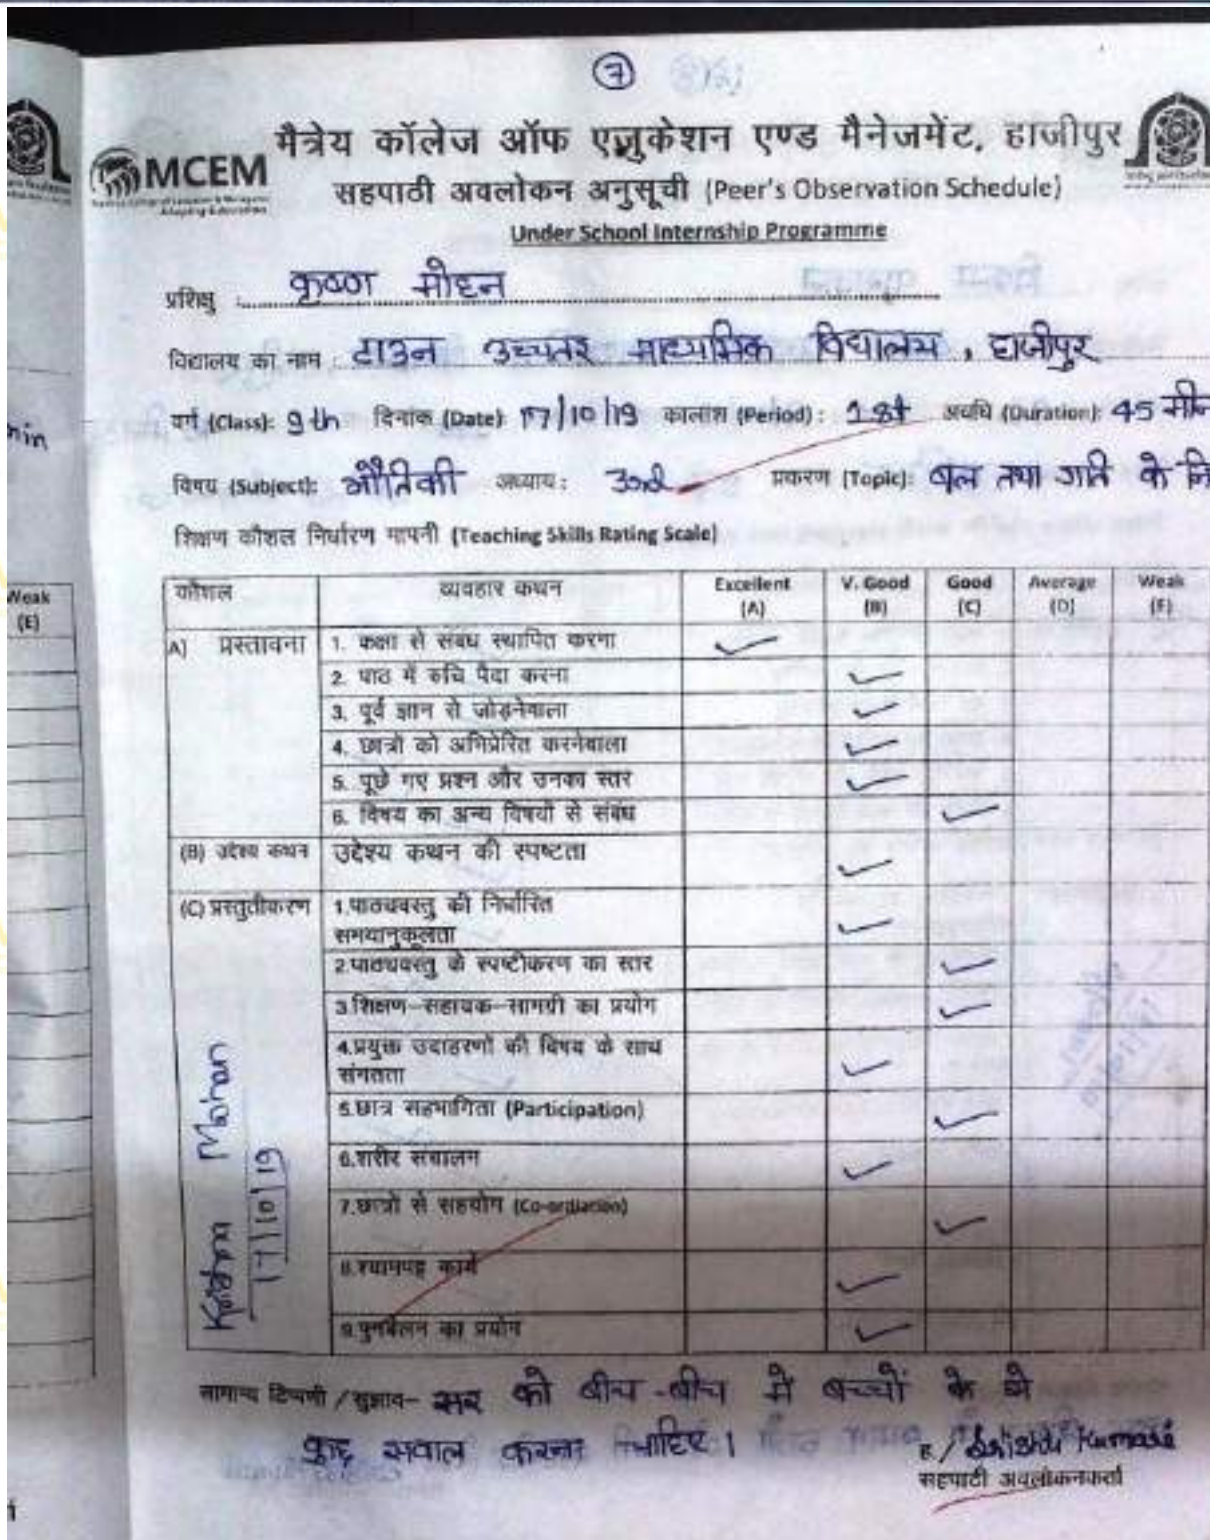 7
MCEM
मैत्रेय कॉलेज ऑफ एजुकेशन एण्ड मैनेजमेंट, हाजीपुर
सहपाठी अवलोकन अनुसूची (Peer's Observation Schedule)
Under School Internship Programme
प्रशिक्षु : कृष्ण मोहन
विद्यालय का नाम : टाउन उच्चतर माध्यमिक विद्यालय, हाजीपुर
min
वर्ग (Class): 9th दिनांक (Date): 17/10/19 कालांश (Period): 1st अवधि (Duration): 45
विषय (Subject): भौतिकी अध्याय: 3rd प्रकरण (Topic): बल तथा गति के नि
शिक्षण कौशल निर्धारण मापनी (Teaching Skills Rating Scale)
Weak (E)
कौशल व्यवहार कथन Excellent (A) V. Good (B) Good (C) Average (D) Weak (F)
A) प्रस्तावना 1. कक्षा से संबंध स्थापित करना
2. पाठ में रुचि पैदा करना
3. पूर्व ज्ञान से जोड़नेवाला
4. छात्रों को अभिप्रेरित करनेवाला
5. पूछे गए प्रश्न और उनका स्तर
6. विषय का अन्य विषयों से संबंध
(B) उद्देश्य कथन उद्देश्य कथन की स्पष्टता
(C) प्रस्तुतीकरण 1.पाठ्यवस्तु की निर्धारित
समयानुकूलता
2.पाठ्यवस्तु के स्पष्टीकरण का स्तर
3.शिक्षण–सहायक–सामग्री का प्रयोग
4.प्रयुक्त उदाहरणों की विषय के साथ
संगतता
5.छात्र सहभागिता (Participation)
6.शरीर संचालन
7.छात्रों से सहयोग (Co-ordiation)
8.श्यामपट्ट कार्य
9.पुनर्बलन का प्रयोग
Krishna Mohan
17/10/19
सामान्य टिप्पणी / सुझाव– सर को बीच-बीच में बच्चों के से
कुछ सवाल करना चाहिए।
Kumari
सहपाठी अवलोकनकर्ता